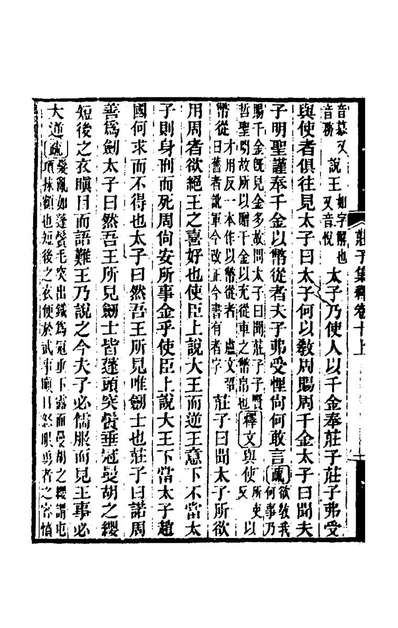 莊子集釋卷十上
音慕又音務說王如字解也又音悅太子乃使人以千金奉莊子莊子弗受
與使者俱往見太子曰太子何以教周賜周千金太子曰聞夫
子明聖謹奉千金以幣從者夫子弗受悝尚何敢言疏欲教我何事乃
賜千金既見金多故問太子曰聞莊子賢哲聖明故所以贈千金以充從車之幣帛也釋文與使所吏反以
幣從才用反一本作以幣從者盧文弨曰舊者訛軍今改正今書有者字莊子曰聞太子所欲
用周者欲絕王之喜好也使臣上說大王而逆王意下不當太
子則身刑而死周尚安所事金乎使臣上說大王下當太子趙
國何求而不得也太子曰然吾王所見唯劍士也莊子曰諾周
善爲劍太子曰然吾王所見劍士皆蓬頭突鬢垂冠曼胡之纓
短後之衣瞋目而語難王乃說之今夫子必儒服而見王事必
大逆疏髮亂如蓬鬢毛突出鐵爲冠垂下露面曼胡之纓謂屯項抹額也短後之衣便於武事瞋目怒眼勇者之容憤